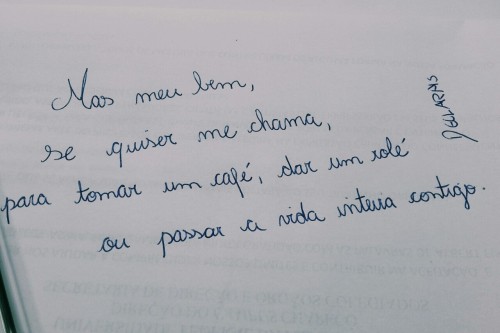 Mas meu bem,
se quiser me chama,
para tomar um café, dar um rolé
ou passar a vida inteira contigo.